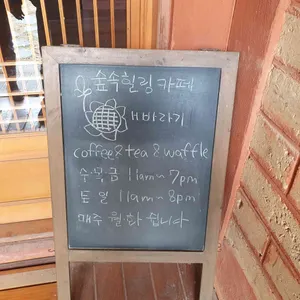 숲속힐링카페
해바라기
coffee & tea & waffle
수·목·금 11am~7pm
토 일 11am~8pm
매주 월·화 쉽니다